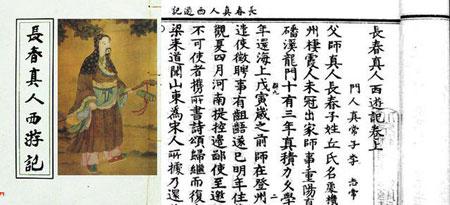 長春真人西游記
長春真人西遊記
長春真人西遊記卷上
門人真常子李 志常
父師真人長春子姓丘氏名處機
州棲霞人未冠出家師事重陽真
磻溪龍門十有三年真積力久學
年還海上戊寅歲之前師在登州
遣使徵聘事有齟齬遂已明年住
觀夏四月河南提控邊鄙使至邀
不可使者攜所書詩頌歸繼而復
梁來道聞山東為宋人所據乃還